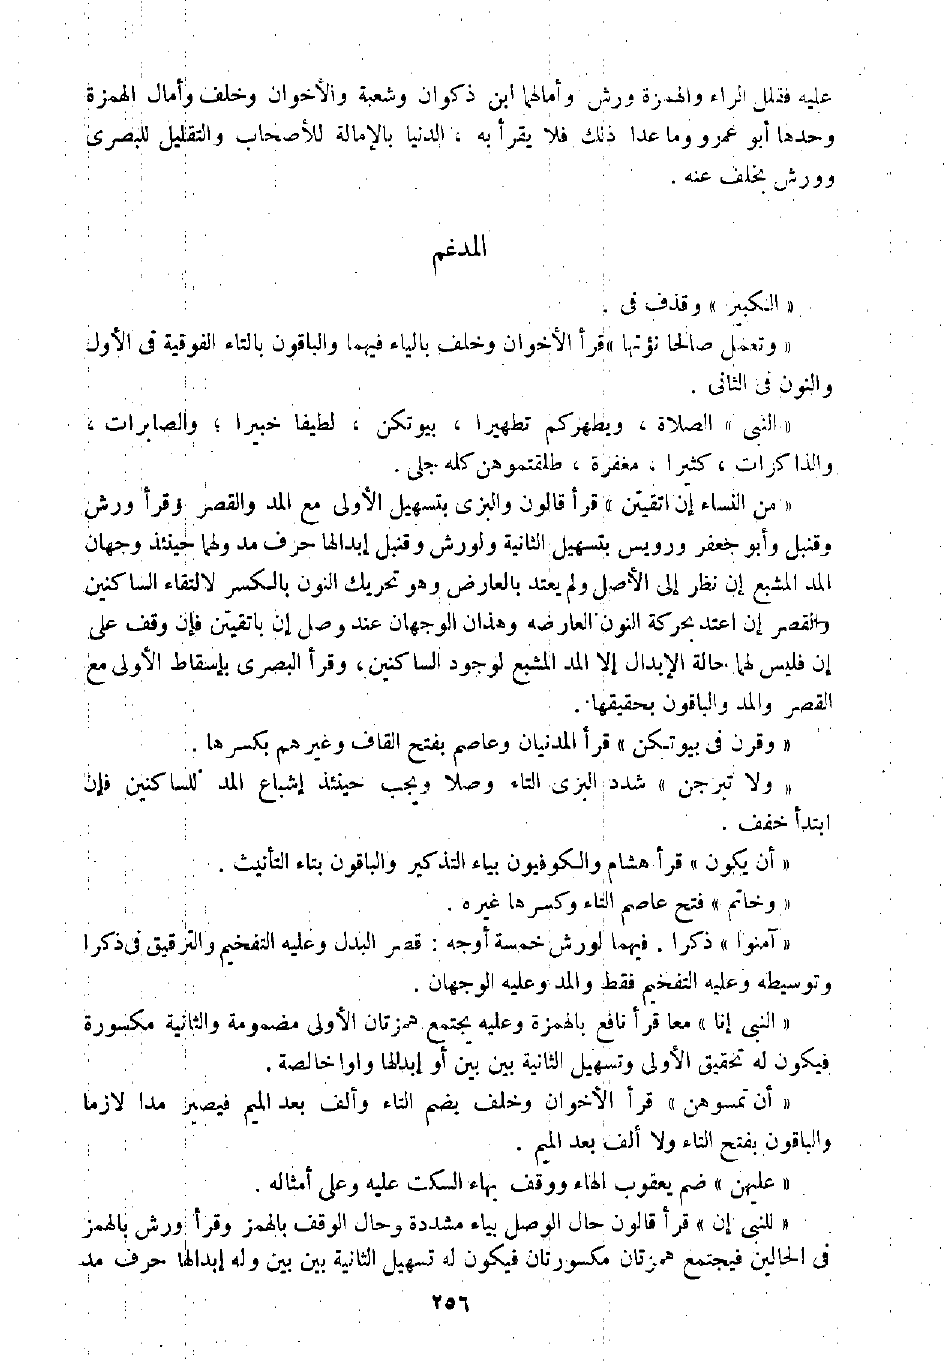 عليه فقلل الراء والهمزة ورش وأمالها ابن ذكوان وشعبة والأخوان وخلف وأمال الهمزة
وحدها أبو عمرو وما عدا ذلك فلا يقرأ به ، الدنيا بالإمالة للأصحاب والتقليل للبصرى
وورش بخلف عنه .
المدغم
« الكبير » وقذف فى .
« وتعمل صالحا نؤتها » قرأ الأخوان وخلف بالياء فيهما والباقون بالتاء الفوقية فى الأول
والنون فى الثانى .
« النبى » الصلاة ، ويطهركم تطهيرا ، بيوتكن ، لطيفا خبيرا ؛ والصابرات ،
والذاكرات ، كثيرا ، مغفرة ، طلقتموهن كله جلى .
« من النساء إن اتقيتن » قرأ قالون والبزى بتسهيل الأولى مع المد والقصر وقرأ ورش
وقنبل وأبو جعفر ورويس بتسهيل الثانية ولورش وقنبل إبدالها حرف مد ولهما حينئذ وجهان
المد المشبع إن نظر إلى الأصل ولم يعتد بالعارض وهو تحريك النون بالكسر لالتقاء الساكنين
والقصر إن اعتد بحركة النون العارضه وهذان الوجهان عند وصل إن باتقيتن فإن وقف على
إن فليس لهما حالة الإبدال إلا المد المشبع لوجود الساكنين، وقرأ البصرى بإسقاط الأولى مع
القصر والمد والباقون بحقيقها .
« وقرن فى بيوتكن » قرأ المدنيان وعاصم بفتح القاف وغيرهم بكسرها .
« ولا تبرجن » شدد البزى التاء وصلا ويجب حينئذ إشباع المد للساكنين فإن
ابتدأ خفف .
« أن يكون » قرأ هشام والكوفيون بياء التذكير والباقون بتاء التأنيث .
« وخاتم » فتح عاصم التاء وكسرها غيره .
« آمنوا » ذكرا . فيهما لورش خمسة أوجه : قصر البدل وعليه التفخيم والترقيق فى ذكرا
وتوسيطه وعليه التفخيم فقط والمد وعليه الوجهان .
« النبى إنا » معا قرأ نافع بالهمزة وعليه يجتمع همزتان الأولى مضمومة والثانية مكسورة
فيكون له تحقيق الأولى وتسهيل الثانية بين بين أو إبدالها واوا خالصة .
« أن تمسوهن » قرأ الأخوان وخلف بضم التاء وألف بعد الميم فيصير مدا لازما
والباقون بفتح التاء ولا ألف بعد الميم .
« عليهن » ضم يعقوب الهاء ووقف بهاء السكت عليه وعلى أمثاله .
« للنبى إن » قرأ قالون حال الوصل بياء مشددة وحال الوقف بالهمز وقرأ ورش بالهمز
فى الحالين فيجتمع همزتان مكسورتان فيكون له تسهيل الثانية بين بين وله إبدالها حرف مد
٢٥٦